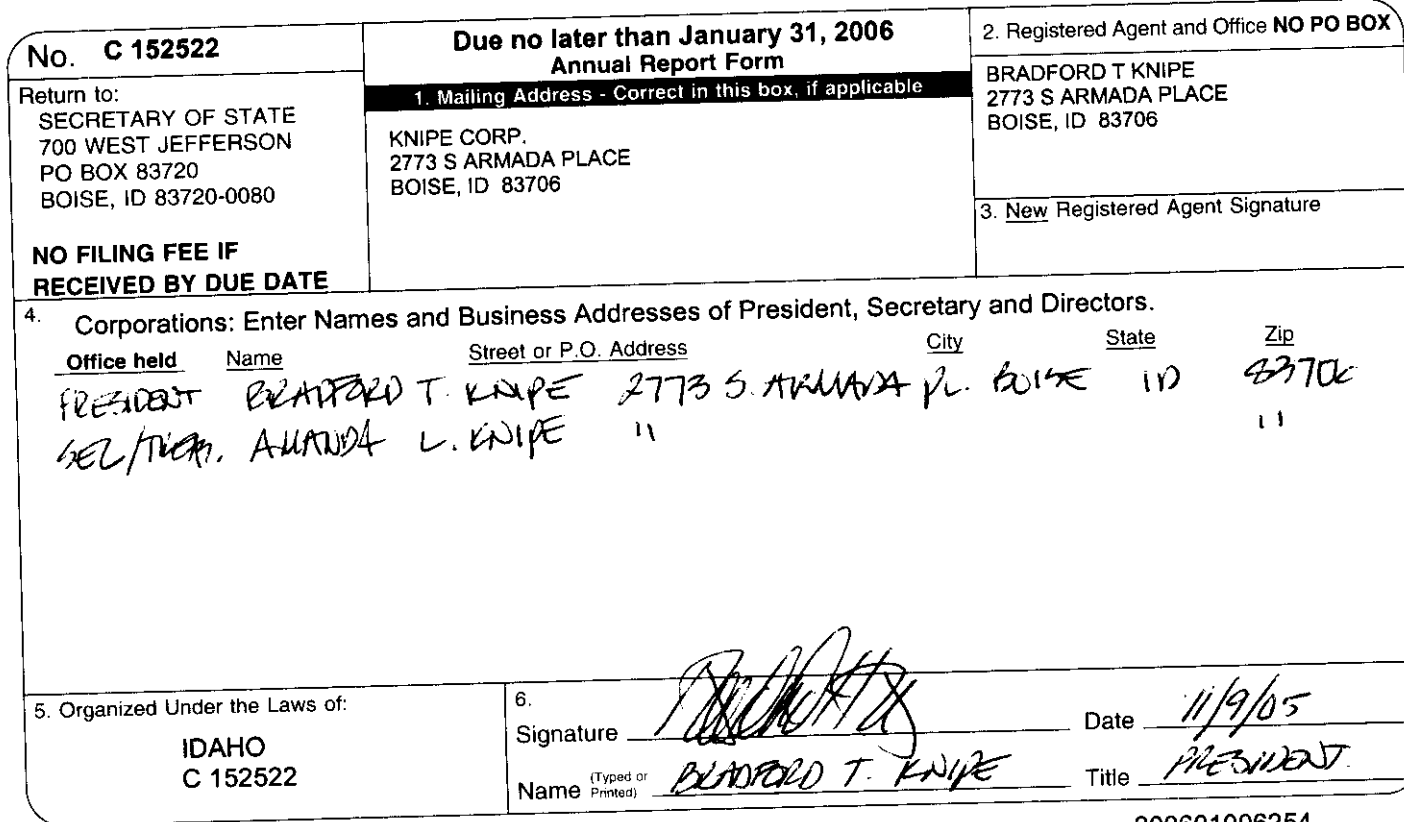 No. C 152522
Return to:
SECRETARY OF STATE
700 WEST JEFFERSON
PO BOX 83720
BOISE, ID 83720-0080
NO FILING FEE IF
RECEIVED BY DUE DATE
Due no later than January 31, 2006
Annual Report Form
1. Mailing Address - Correct in this box, if applicable
KNIPE CORP.
2773 S ARMADA PLACE
BOISE, ID 83706
2. Registered Agent and Office NO PO BOX
BRADFORD T KNIPE
2773 S ARMADA PLACE
BOISE, ID 83706
3. New Registered Agent Signature
4. Corporations: Enter Names and Business Addresses of President, Secretary and Directors.
Office held Name Street or P.O. Address City State Zip
PRESIDENT BRADFORD T. KNIPE 2773 S. ARMADA PL. BOISE ID 83706
SEC/TREAS. AMANDA L. KNIPE " "
5. Organized Under the Laws of:
IDAHO
C 152522
6.
Signature Date 11/9/05
Name (Typed or Printed) BRADFORD T. KNIPE Title PRESIDENT.